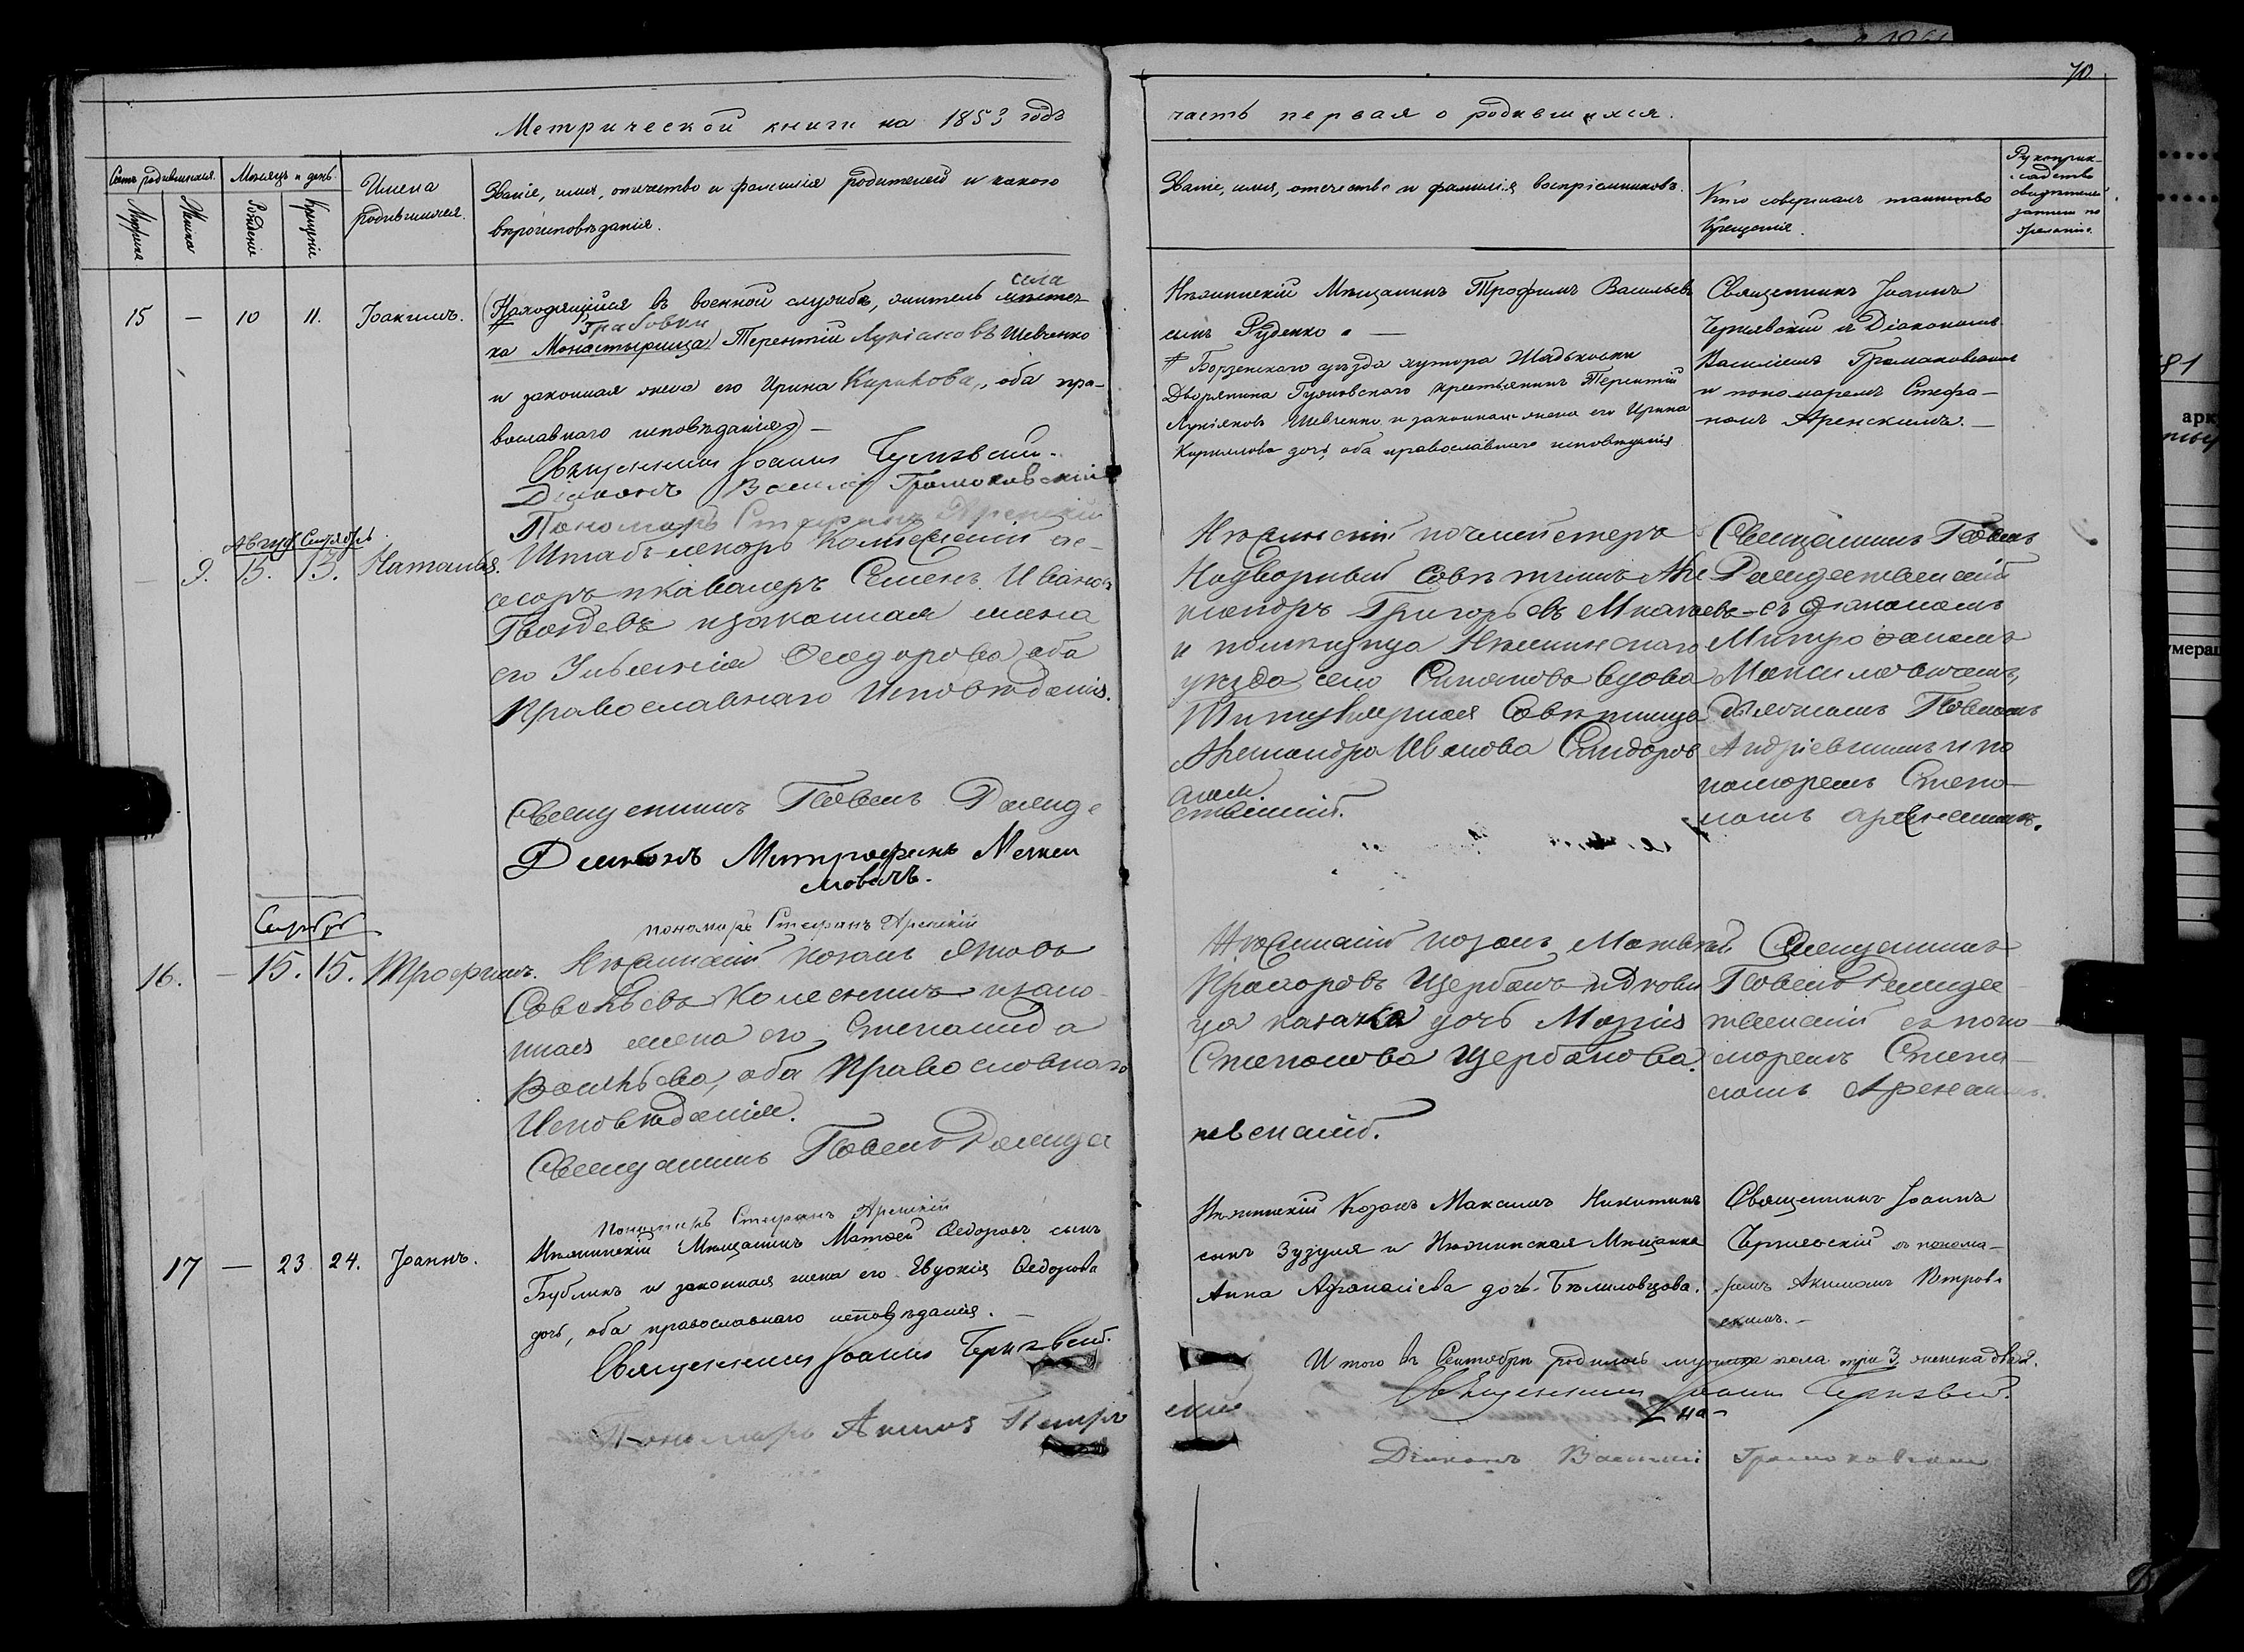 70.
Метрической книги на 1853 годъ
часть первая о родившихся.
Счетъ родившихся.
Мѣсяцъ и день
Имена родившихся.
Званіе, имя, отчество и фамилія родителей и какого
вѣроисповѣданія.
Мужска
Женска
Рожденіе
Крещеніе
Званіе, имя, отечество и фамилія воспріемниковъ.
Кто совершалъ таинство
Крещенія.
Рукоприк-
ладство
свидѣтелей
записи по
желанію.
15 — 10 11. Іоакимъ.
(Находящійся въ военной службѣ, житель села мѣстеч-
Грабовки
ка Монастырища) Терентій Лукіановъ Шевченко
и законная жена его Ирина Кирилова, оба пра-
вославнаго исповѣданія) —
Священникъ Іоаннъ Чернявскій.
Діаконъ Василій Громаковскій
Пономарь Стефанъ Аренскій
Нѣжинскій Мѣщанинъ Трофимъ Васильевъ
сынъ Руденко. —
# Борзенскаго уѣзда хутора
Дворянина крестьянинъ Терентій
Лукіановъ Шевченко и законная жена его Ирина
Кириллова дочь, оба православнаго исповѣданія
Священникъ Іоаннъ
Чернявскій съ Діакономъ
Василіемъ Громаковскимъ
и пономаремъ Стефа-
номъ Аренскимъ. —
Август Сентябрь
— 9. 15. 13. Наталія.
Штабъ-лекарь Колежскій ас-
сесоръ и кавалеръ Семенъ Ивановъ
Гвоздевъ и законная жена
его Ульянія Феодорова оба
Православнаго Исповѣданія.
Священникъ Павелъ Рожде
Діаконъ Митрофанъ Макси
мовичъ.
пономарь Стефанъ Аренскій
Нѣжинскій почмейстеръ
Надворный Совѣтникъ Але
ксандръ Григорьевъ
и помѣщица Нѣжинскаго
уѣзда села вдова
Титулярная Совѣтница
Александра Иванова Сидоров
ская.
ственскій.
Священникъ Павелъ
Рождественскій
съ діакономъ
Митрофаномъ
Максимовичемъ,
дьячкомъ Павломъ
Андріевскимъ и по
номаремъ Степа-
номъ Аренскимъ.
Сентябрь
16. — 15. 15. Трофимъ.
Нѣжинскій Козакъ Яковъ
Савельевъ Колесникъ и зако-
нная жена его Степанида
Васильева, оба Православнаго
Исповѣданія.
Священникъ Павелъ Рождест
Пономарь Стефанъ Аренскій
Нѣжинскій козакъ Матвей
Прохоровъ Щербакъ и дѣви
ца казачка дочь Марія
Степанова Щербакова.
венскій.
Священникъ
Павелъ Рождес-
твенскій съ поно-
моремъ Степа-
номъ Аренскимъ.
17 — 23 24. Іоаннъ.
Нѣжинскій Мѣщанинъ Матѳей Ѳедоровъ сынъ
Бубликъ и законная жена его Евдокія Ѳедорова
дочь, оба православнаго исповѣданія. —
Священникъ Іоаннъ Чернявскій.
Пономарь Акимъ Петров
скій
Нѣжинскій Козакъ Максимъ Никитинъ
сынъ Зузуля и Нѣжинская Мѣщанка
Анна Афанасіева дочь Бѣлиловцова.
Священникъ Іоаннъ
Чернявскій съ понома-
ремъ Акимомъ Петров-
скимъ. —
И того въ Сентябрѣ родилось мужеска пола три 3. женска два 2.
Священникъ Іоаннъ Чернявскій.
Діаконъ Василій Громаковскій